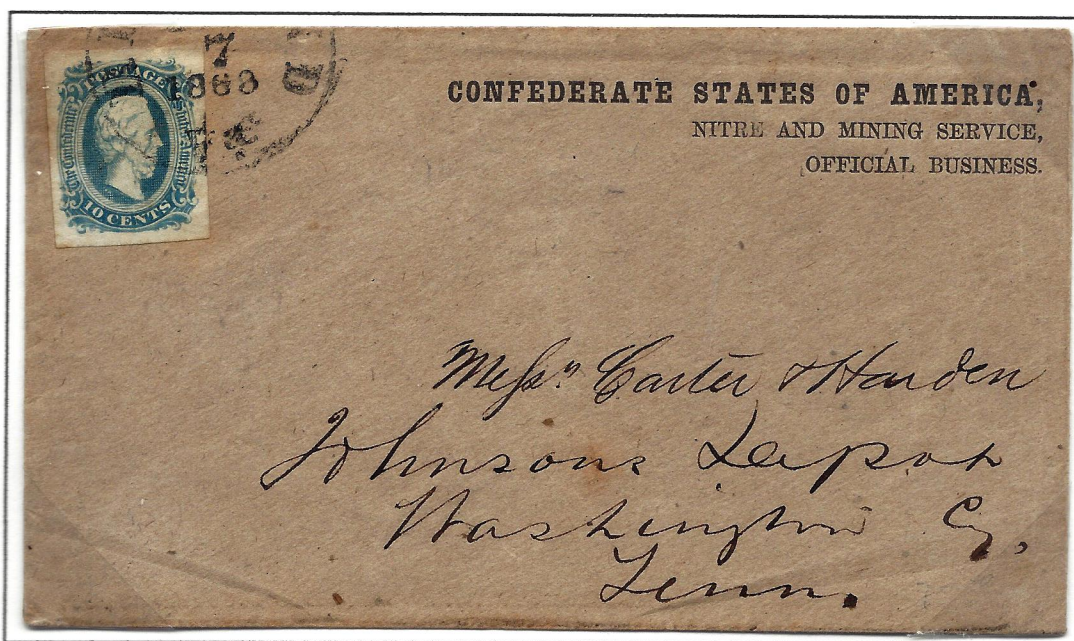 7
1863
Va
POSTAGE
The Confederate States of America
10 CENTS
CONFEDERATE STATES OF AMERICA,
NITRE AND MINING SERVICE,
OFFICIAL BUSINESS.
Messrs Carter & Harden
Johnsons Depot
Washington Cy,
Tenn.